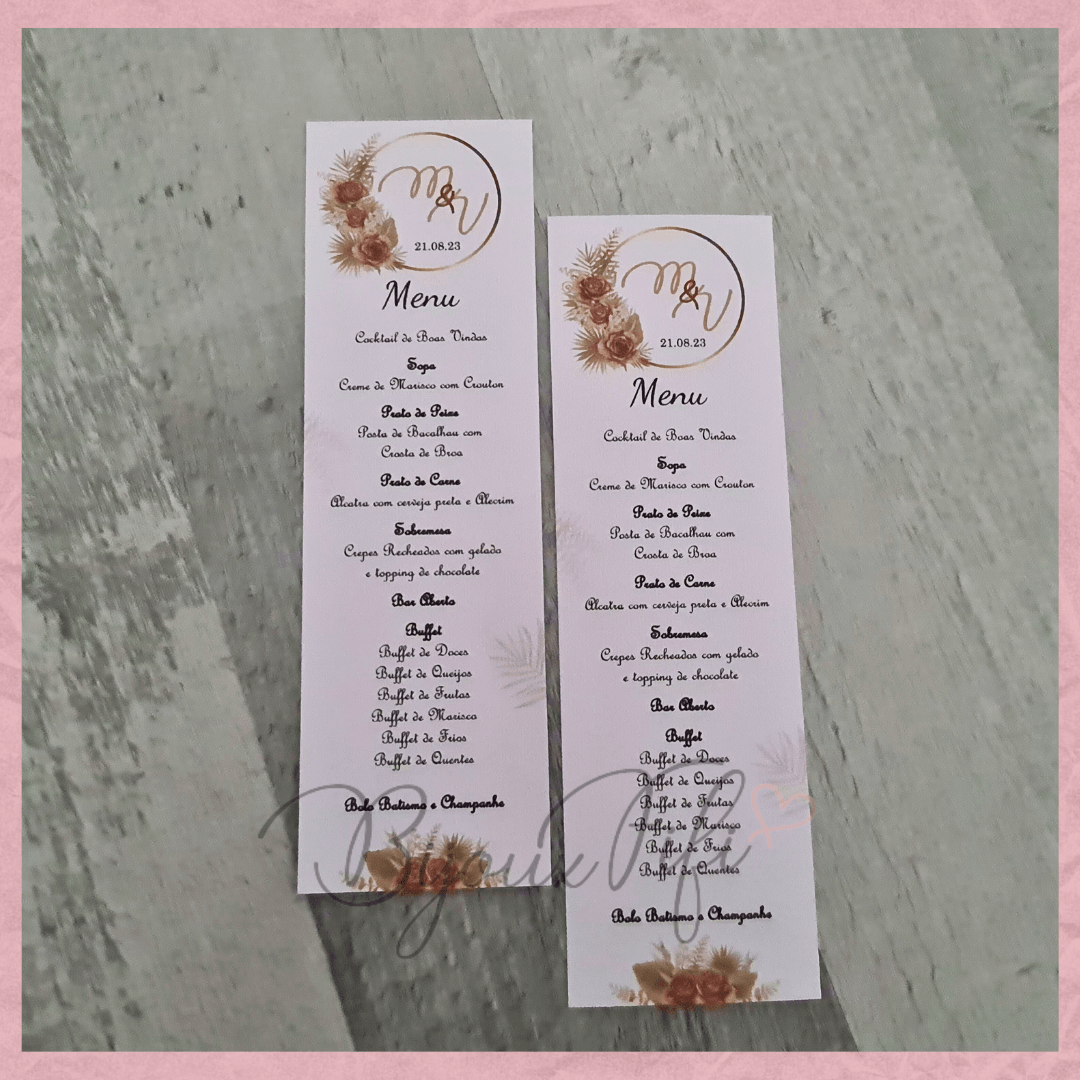 &
21.08.23
Menu
Cocktail de Boas Vindas
Sopa
Creme de Marisco com Crouton
Prato de Peixe
Posta de Bacalhau com
Crosta de Broa
Prato de Carne
Alcatra com cerveja preta e Alecrim
Sobremesa
Crepes Recheados com gelado
e topping de chocolate
Bar Aberto
Buffet
Buffet de Doces
Buffet de Queijos
Buffet de Frutas
Buffet de Marisco
Buffet de Frios
Buffet de Quentes
Bolo Batismo e Champanhe
&
21.08.23
Menu
Cocktail de Boas Vindas
Sopa
Creme de Marisco com Crouton
Prato de Peixe
Posta de Bacalhau com
Crosta de Broa
Prato de Carne
Alcatra com cerveja preta e Alecrim
Sobremesa
Crepes Recheados com gelado
e topping de chocolate
Bar Aberto
Buffet
Buffet de Doces
Buffet de Queijos
Buffet de Frutas
Buffet de Marisco
Buffet de Frios
Buffet de Quentes
Bolo Batismo e Champanhe